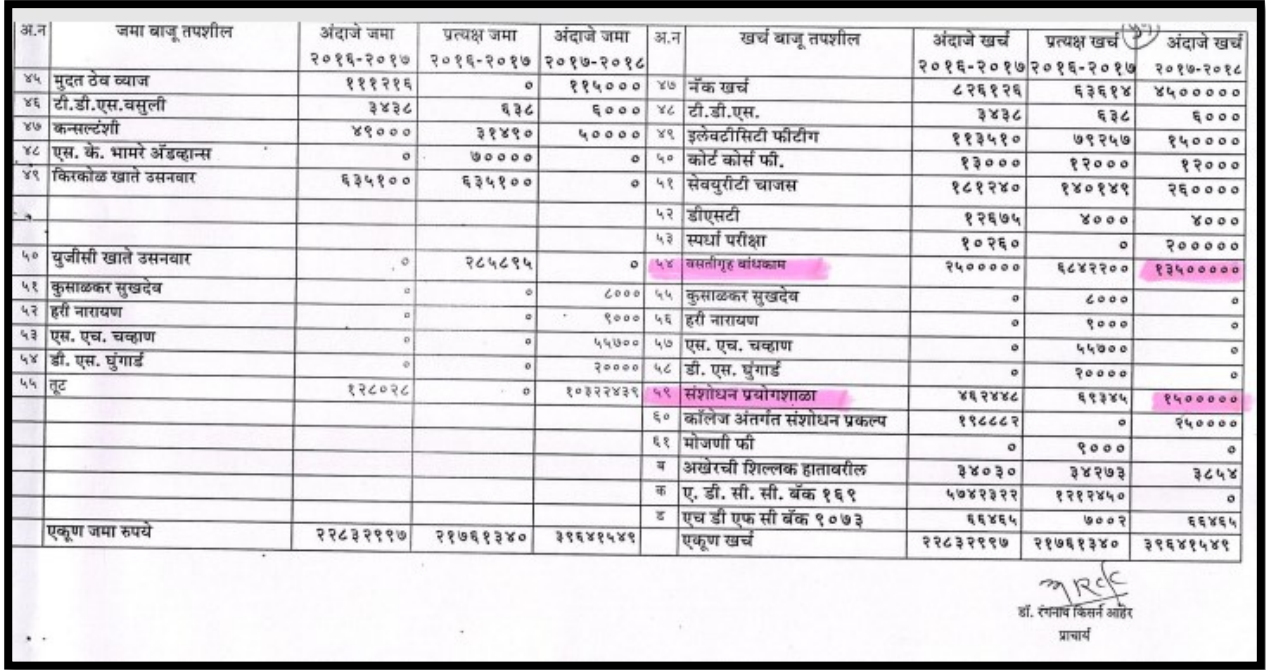 अ.न जमा बाजू तपशील अंदाजे जमा प्रत्यक्ष जमा अंदाजे जमा अ.न खर्च बाजू तपशील अंदाजे खर्च प्रत्यक्ष खर्च अंदाजे खर्च
२०१६-२०१७ २०१६-२०१७ २०१७-२०१८ २०१६-२०१७ २०१६-२०१७ २०१७-२०१८
४५ मुदत ठेव व्याज १११२१६ ० ११५००० ४७ नॅक खर्च ८२६१२६ ६३६१४ ४५०००००
४६ टी.डी.एस.वसुली ३४३८ ६३८ ६००० ४८ टी.डी.एस. ३४३८ ६३८ ६०००
४७ कन्सल्टंशी ४९००० ३१४९० ५०००० ४९ इलेवटीसिटी फीटीग ११३५१० ७९२५७ १५००००
४८ एस. के. भामरे अॅडव्हान्स ० ७०००० ० ५० कोर्ट कोर्स फी. १३००० १२००० १२०००
४९ किरकोळ खाते उसनवार ६३५१०० ६३५१०० ० ५१ सेवयुरीटी चाजस १८१२४० १४०१४९ २६००००
५२ डीएसटी १२६७५ ४००० ४०००
५३ स्पर्धा परीक्षा १०२६० ० २०००००
५० युजीसी खाते उसनवार ० २८५८९५ ० ५४ वसतीगृह बांधकाम २५००००० ६८४२२०० १३५०००००
५१ कुसाळकर सुखदेव ० ० ८००० ५५ कुसाळकर सुखदेव ० ८००० ०
५२ हरी नारायण ० ० ९००० ५६ हरी नारायण ० ९००० ०
५३ एस. एच. चव्हाण ० ० ५५७०० ५७ एस. एच. चव्हाण ० ५५७०० ०
५४ डी. एस. घुंगार्ड ० ० २०००० ५८ डी. एस. घुंगार्ड ० २०००० ०
५५ तूट १२८०२८ ० १०३२२४३९ ५९ संशोधन प्रयोगशाळा ४६२४४८ ६९३४५ १५०००००
६० कॉलेज अंतर्गत संशोधन प्रकल्प १९८८८२ ० २५००००
६१ मोजणी फी ० ९००० ०
ब अखेरची शिल्लक हातावरील ३४०३० ३४२७३ ३८५४
क ए. डी. सी. सी. बॅक १६९ ५७४२३२२ १२१२४५० ०
ड एच डी एफ सी बॅक ९०७३ ६६४६५ ७००२ ६६४६५
एकूण जमा रुपये २२८३२९९७ २१७६१३४० ३९६४१५४९ एकूण खर्च २२८३२९९७ २१७६१३४० ३९६४१५४९
डॉ. रंगनाथ किसर्न आहेर
प्राचार्य